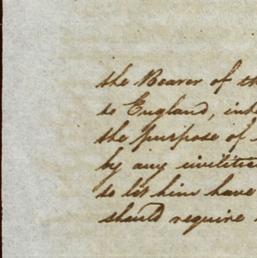 the Bearer of th
to England, int
the purpose of
by any civilitie
to let him have
should require